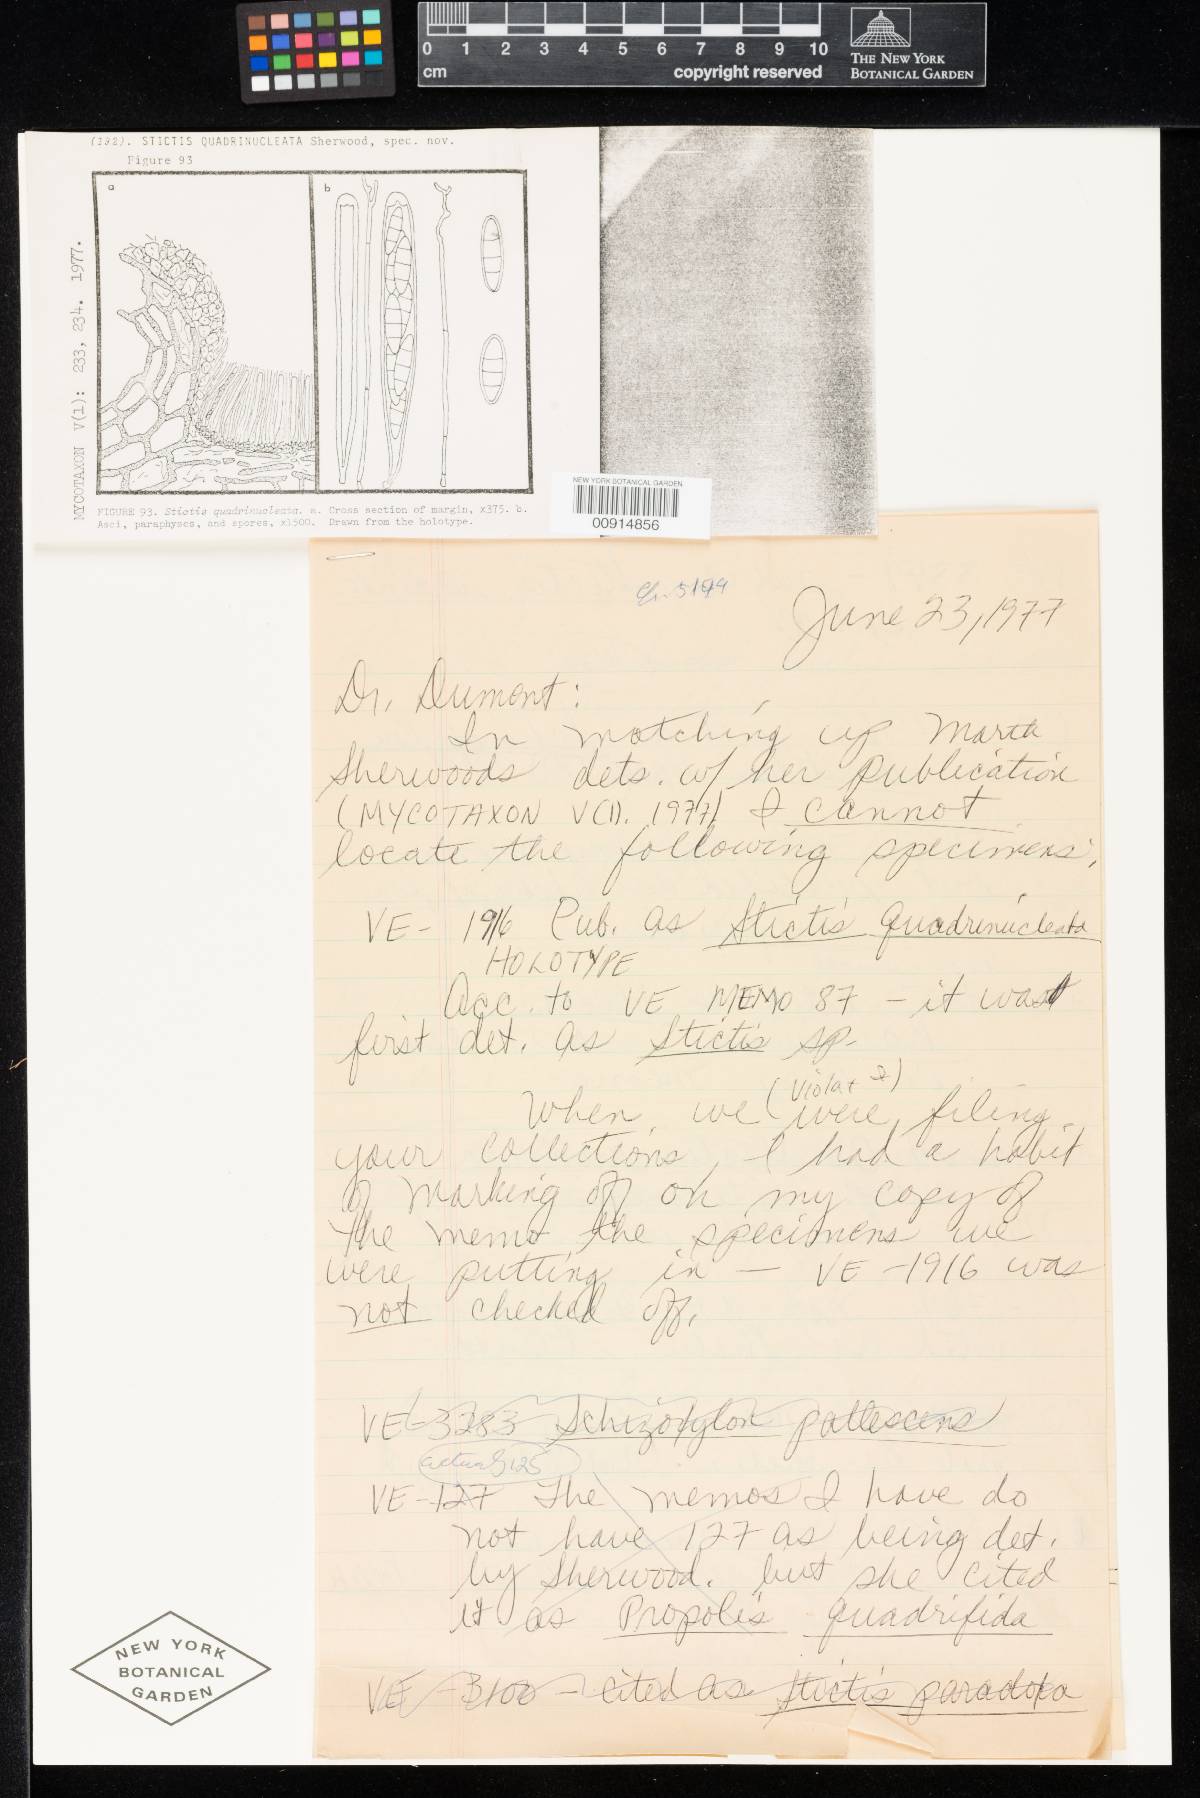 0 1 2 3 4 5 6 7 8 9 10
cm
copyright reserved
THE NEW YORK
BOTANICAL GARDEN
(392). STICTIS QUADRINUCLEATA Sherwood, spec. nov.
Figure 93
MYCOTAXON V(1): 233, 234. 1977.
a
b
FIGURE 93. Stictis quadrinucleata. a. Cross section of margin, x375. b.
Asci, paraphyses, and spores, x1500. Drawn from the holotype.
NEW YORK BOTANICAL GARDEN
00914856
June 23, 1977
Dr. Dumont:
In matching up Marth
Sherwoods dets. w/ her publication
(MYCOTAXON V(1). 1977) I cannot
locate the following specimens.
VE- 1916 Pub. as Stictis quadrinucleata
HOLOTYPE
Acc. to VE MEMO 87 - it was
first det. as Stictis sp.
When we (Viola + I) were filing
your collections, I had a habit
of marking off on my copy of
the memo the specimens we
were putting in — VE-1916 was
not checked off.
VE-3283 Schizoxylon pallescens
actually 125
VE-127 The memos I have do
not have 127 as being det.
by Sherwood. but she cited
it as Propolis quadrifida
VE-3100 - cited as Stictis paradoxa
NEW YORK
BOTANICAL
GARDEN